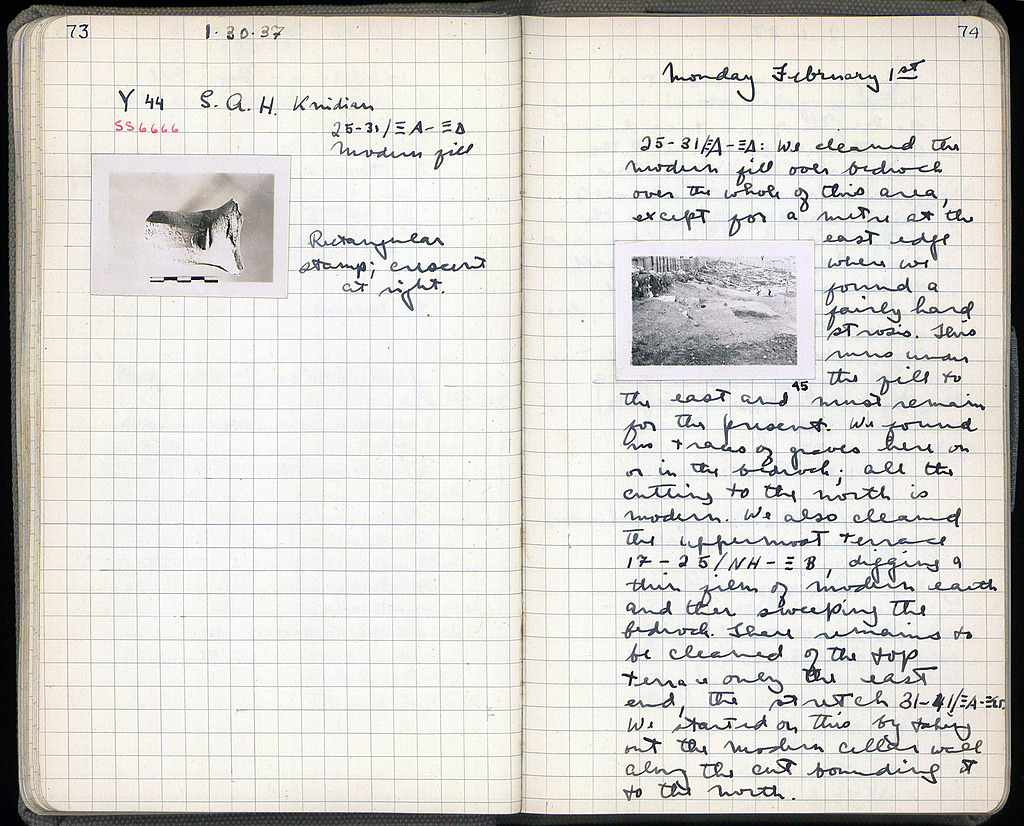 73
1·30·37
Y 44 S. A. H. Knidian
SS6666
25-31/ΞA-ΞΔ
Modern fill
Rectangular
stamp; crescent
at right.
74
Monday February 1st
25-31/ΞA-ΞΔ: We cleaned the
modern fill over bedrock
over the whole of this area,
except for a metre at the
east edge
where we
found a
fairly hard
strosis. This
runs under
the fill to
45
the east and must remain
for the present. We found
no traces of graves here on
or in the bedrock; all the
cutting to the north is
modern. We also cleaned
the uppermost terrace
17-25/NH-ΞB, digging a
thin film of modern earth
and then sweeping the
bedrock. There remains to
be cleaned of the top
terrace only the east
end, the stretch 31-41/ΞA-
We started on this by taking
out the modern cellar wall
along the cut bounding it
to the north.